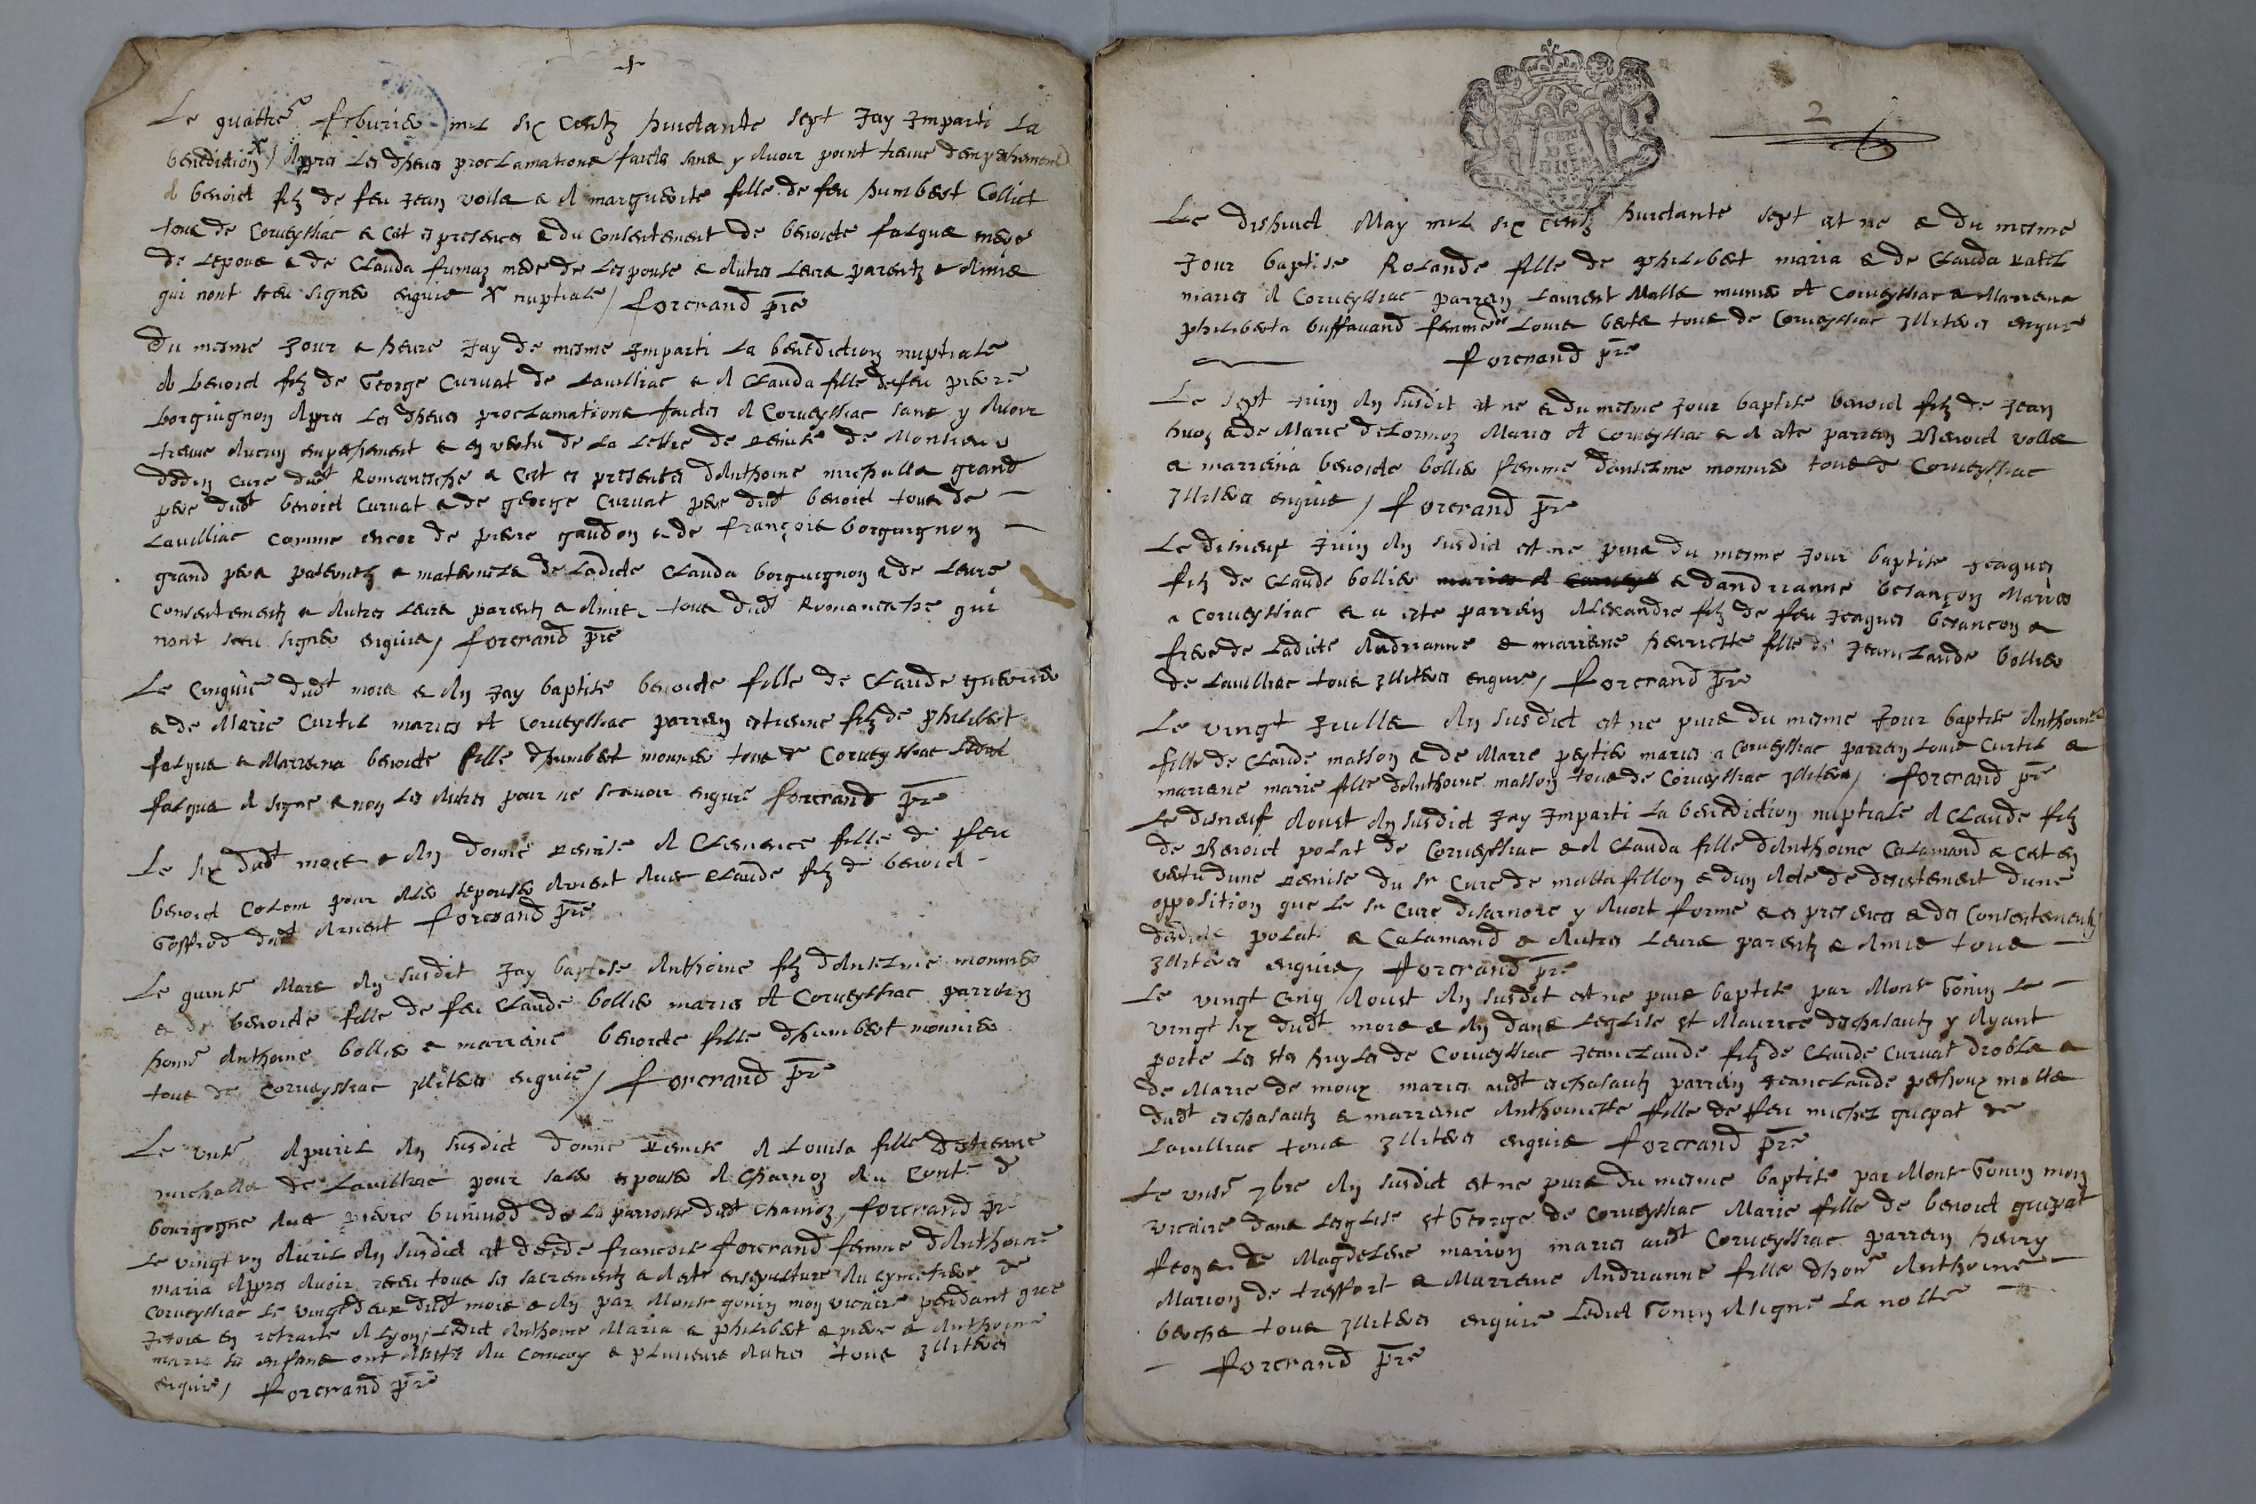 Le quattre feburier mil six centz huictante sept Jay Imparti La
benediction x / Appres Les Trois proclamations faictes sans y Avoir point treuve dempechement
A benoict filz de feu Jean volle & A marguerite fille de feu humbert Colliet
tous de Corveyssiac & cet es presences & du Consentement de benoicte falque mere
de Lepoux & de Clauda fumaz mere de Lespouse & Autres Leurs parentz & Amis
qui nont sceu signer enquis x nuptiale / forcrand pre
Du mesme Jour & heure Jay de mesme Imparti La benediction nuptiale
A benoict filz de George Curvat de Lavilliac & A Clauda fille de feu pierre
borguignon Appres Les proclamations faictes A Corveyssiac sans y Avoir
treuve Aucun empechement & en vertu de La Lettre de remise de Monsieur
Dodin Cure dudt Romaneche & Cet es presences dAnthoine michalla grand
pere dudt benoict Curvat & de george Curvat pere dudt benoict tous de
Lavilliac comme encor de pierre gaudon & de françois borguignon
grand pere paternelz & maternelz de Ladicte Clauda borguignon & de Leurs
Consentementz & Autres Leurs parentz & Amis tous dudt Romaneche qui
nont sceu signer enquis / forcrand pre
Le Cinquie dudt mois & An Jay baptise benoicte fille de Claude
& de Marie Curtil maries A Corveyssiac parrein estienne filz de philibert
falque & Marreina benoicte fille dhumbert monnier tous de Corveyssiac
falque A signe & non Les Autres pour ne scavoir enquis forcrand pre
Le six dudt mois & An donne remise A Clemence fille de feu
benoict Colom pour Aller sepouser Avec Claude filz de benoict
Goffred dudt forcrand pre
Le quinze Mars An susdit Jay baptise Anthoine filz dAntelme monnier
& de benoicte fille de feu Claude bollier maries A Corveyssiac parrein
honn Anthoine bollier & marreine benoicte fille dhumbert monnier
tous de Corveyssiac Illiteres enquis / forcrand pre
Le unze Apvril An susdict donne Remise A Louisa fille destienne
michalla de Lavilliac pour saller espouser A Charnoz Au Conte de
bourgogne Avec pierre de La parroisse dudt Charnoz, forcrand pre
Le vingt un Avril An susdict et decede francoise forcrand femme dAnthoine
maria Appres Avoir receu tous ses sacrementz & a ete ensepulture Au cymetiere de
Corveyssiac Le vingt deux dudt mois & An par Monsr gonin mon vicaire pendant que
Jetois en retraite A Lyon, Ledict Anthoine Maria & philibert & pierre & Anthoine
maria ses enfans ont Assiste Au convoy & plusieurs Autres tous Illiteres
enquis / forcrand pre
2
Le dishuict May mil six centz huictante sept est ne & du mesme
Jour baptise Rolande fille de philibert maria & de Clauda ratel
maries A Corveyssiac parrein Laurent Malle munier A Corveyssiac & Marreine
philiberta buffavand femme de Louis berte tous de Corveyssiac Illiteres enquis
forcrand pre
Le sept Juin An susdit est ne & du mesme Jour baptise benoict filz de Jean
huoz & de Marie deLormoz Maries A Corveyssiac & A ete parrein Benoict volle
& marreina benoicte bollier femme dantelme monnier tous de Corveyssiac
Illiteres enquis / forcrand pre
Le disneuf Juin An susdict est ne puis du mesme Jour baptise Jeaques
filz de Claude bollier & dandrianne besançon Maries
a Corveyssiac & a este parrein Alexandre filz de feu Jeaques besançon &
frere de Ladicte Andrianne & marreine henriette fille de Jeanclaude bollier
de Lavilliac tous Illiteres enquis / forcrand pre
Le vingt Juille An susdict est ne puis du mesme Jour baptise Anthoine
fille de Claude masson & de Marie peytier maries a Corveyssiac parrein Louis Curtil &
marreine marie fille dAnthoine masson tous de Corveyssiac Illiteres / forcrand pre
Le disneuf Aoust An susdict Jay Imparti La benediction nuptiale A Claude filz
de Benoict polat de Corveyssiac & A Clauda fille dAnthoine Calamand & Cet en
vertu dune remise du Sr Cure de mattafellon & dun Acte de desistement dune
opposition que Le Sr Cure disarnore y Avoit forme & es presences & des Consentementz
desdicts polat & Calamand & Autres Leurs parentz & Amis tous
Illiteres enquis / forcrand pre
Le vingt cinq Aoust An susdit est ne puis baptise par Monsr Gonin Le
vingt six dudt mois & An dans Leglise St Maurice deschasautz y Ayant
porte Les stes huyles de Corveyssiac Jeanclaude filz de Claude Curvat &
de Marie de moux maries audt eschasautz parrein Jeanclaude pethoux molle
dudt eschasautz & marreine Anthoinette fille de feu michel guepat de
Lavilliac tous Illiteres enquis forcrand pre
Le unze 7bre An susdict est ne puis du mesme baptise par Monsr Gonin mon
vicaire dans Leglise St George de Corveyssiac Marie fille de benoict guepat
feon & de Magdeleine marion maries audt Corveyssiac parrein henry
Marion de treffort & Marreine Andrianne fille dhonn Anthoine
berche tous Illiteres enquis Ledict Gonin A signe La notte
forcrand pre